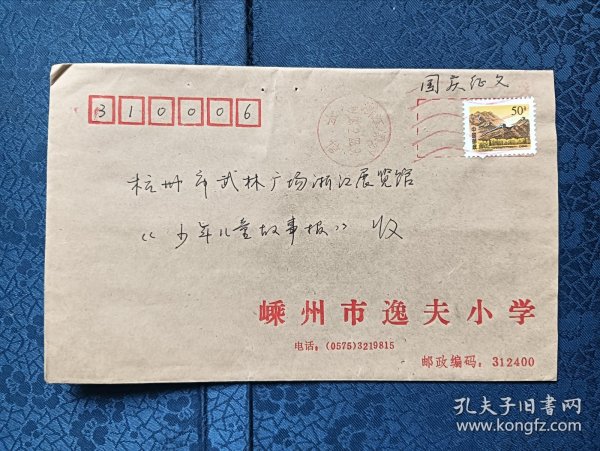 国庆征文
310006
50分
杭州市武林广场浙江展览馆
《少年儿童故事报》收
嵊州市逸夫小学
电话:(0575)3219815
邮政编码:312400
孔夫子旧书网
www.kongfz.com